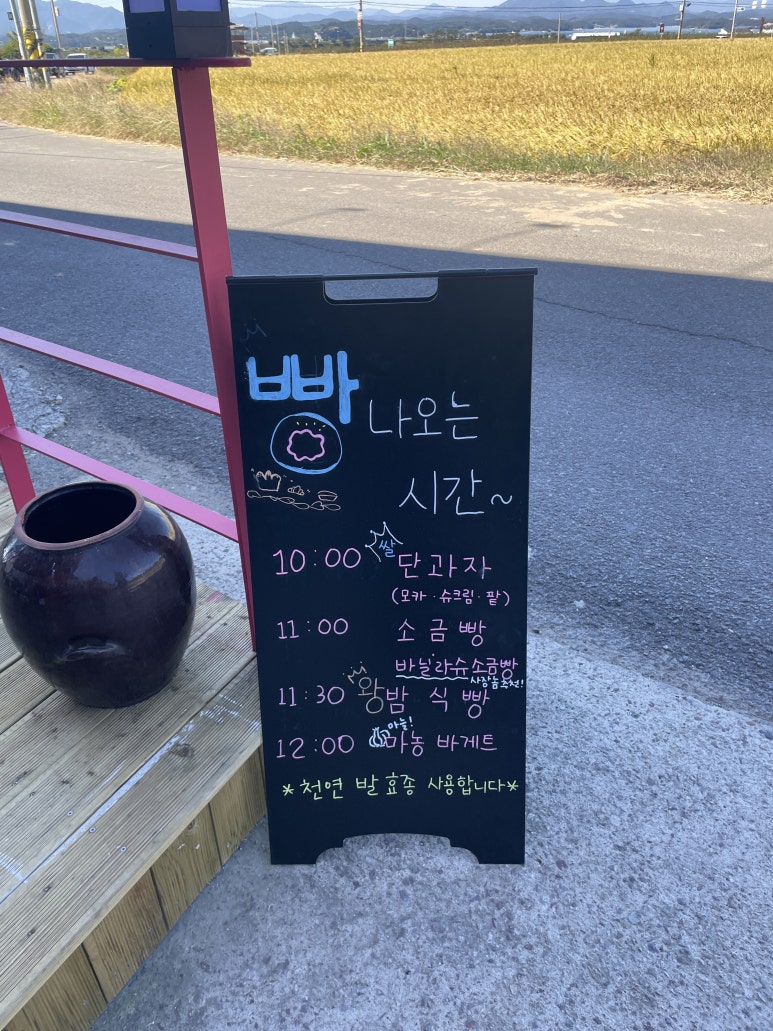 빵 나오는
시간~
10:00 쌀 단과자
(모카·슈크림·팥)
11:00 소금빵
바닐라슈소금빵
사장님추천!
11:30 왕밤 식빵
마늘!
12:00 마농 바게트
*천연 발효종 사용합니다*